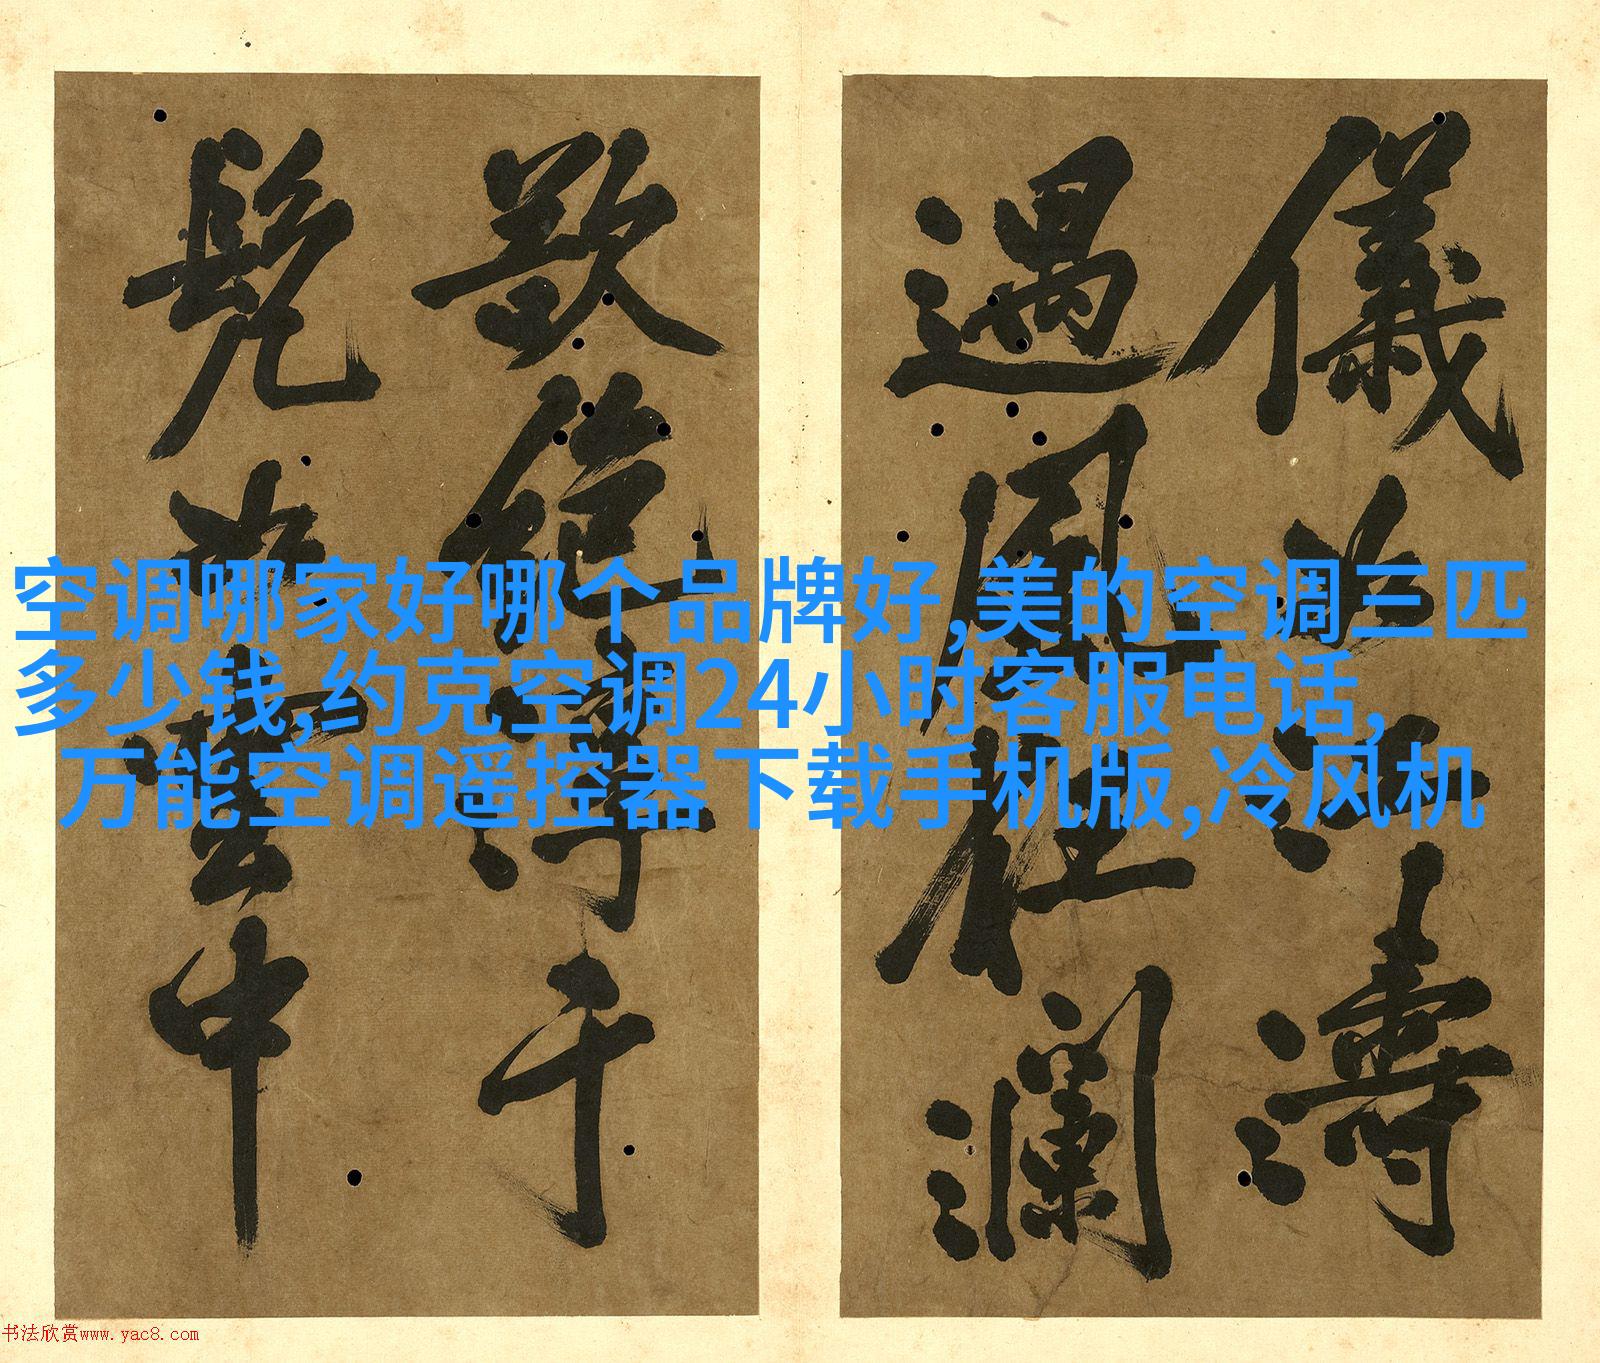 空调哪家好哪个品牌好,美的空调三匹
多少钱,约克空调24小时客服电话,
万能空调遥控器下载手机版,冷风机
儀
濤
遇風
狂瀾
歘
于
髡
雲中
书法欣赏www.yac8.com